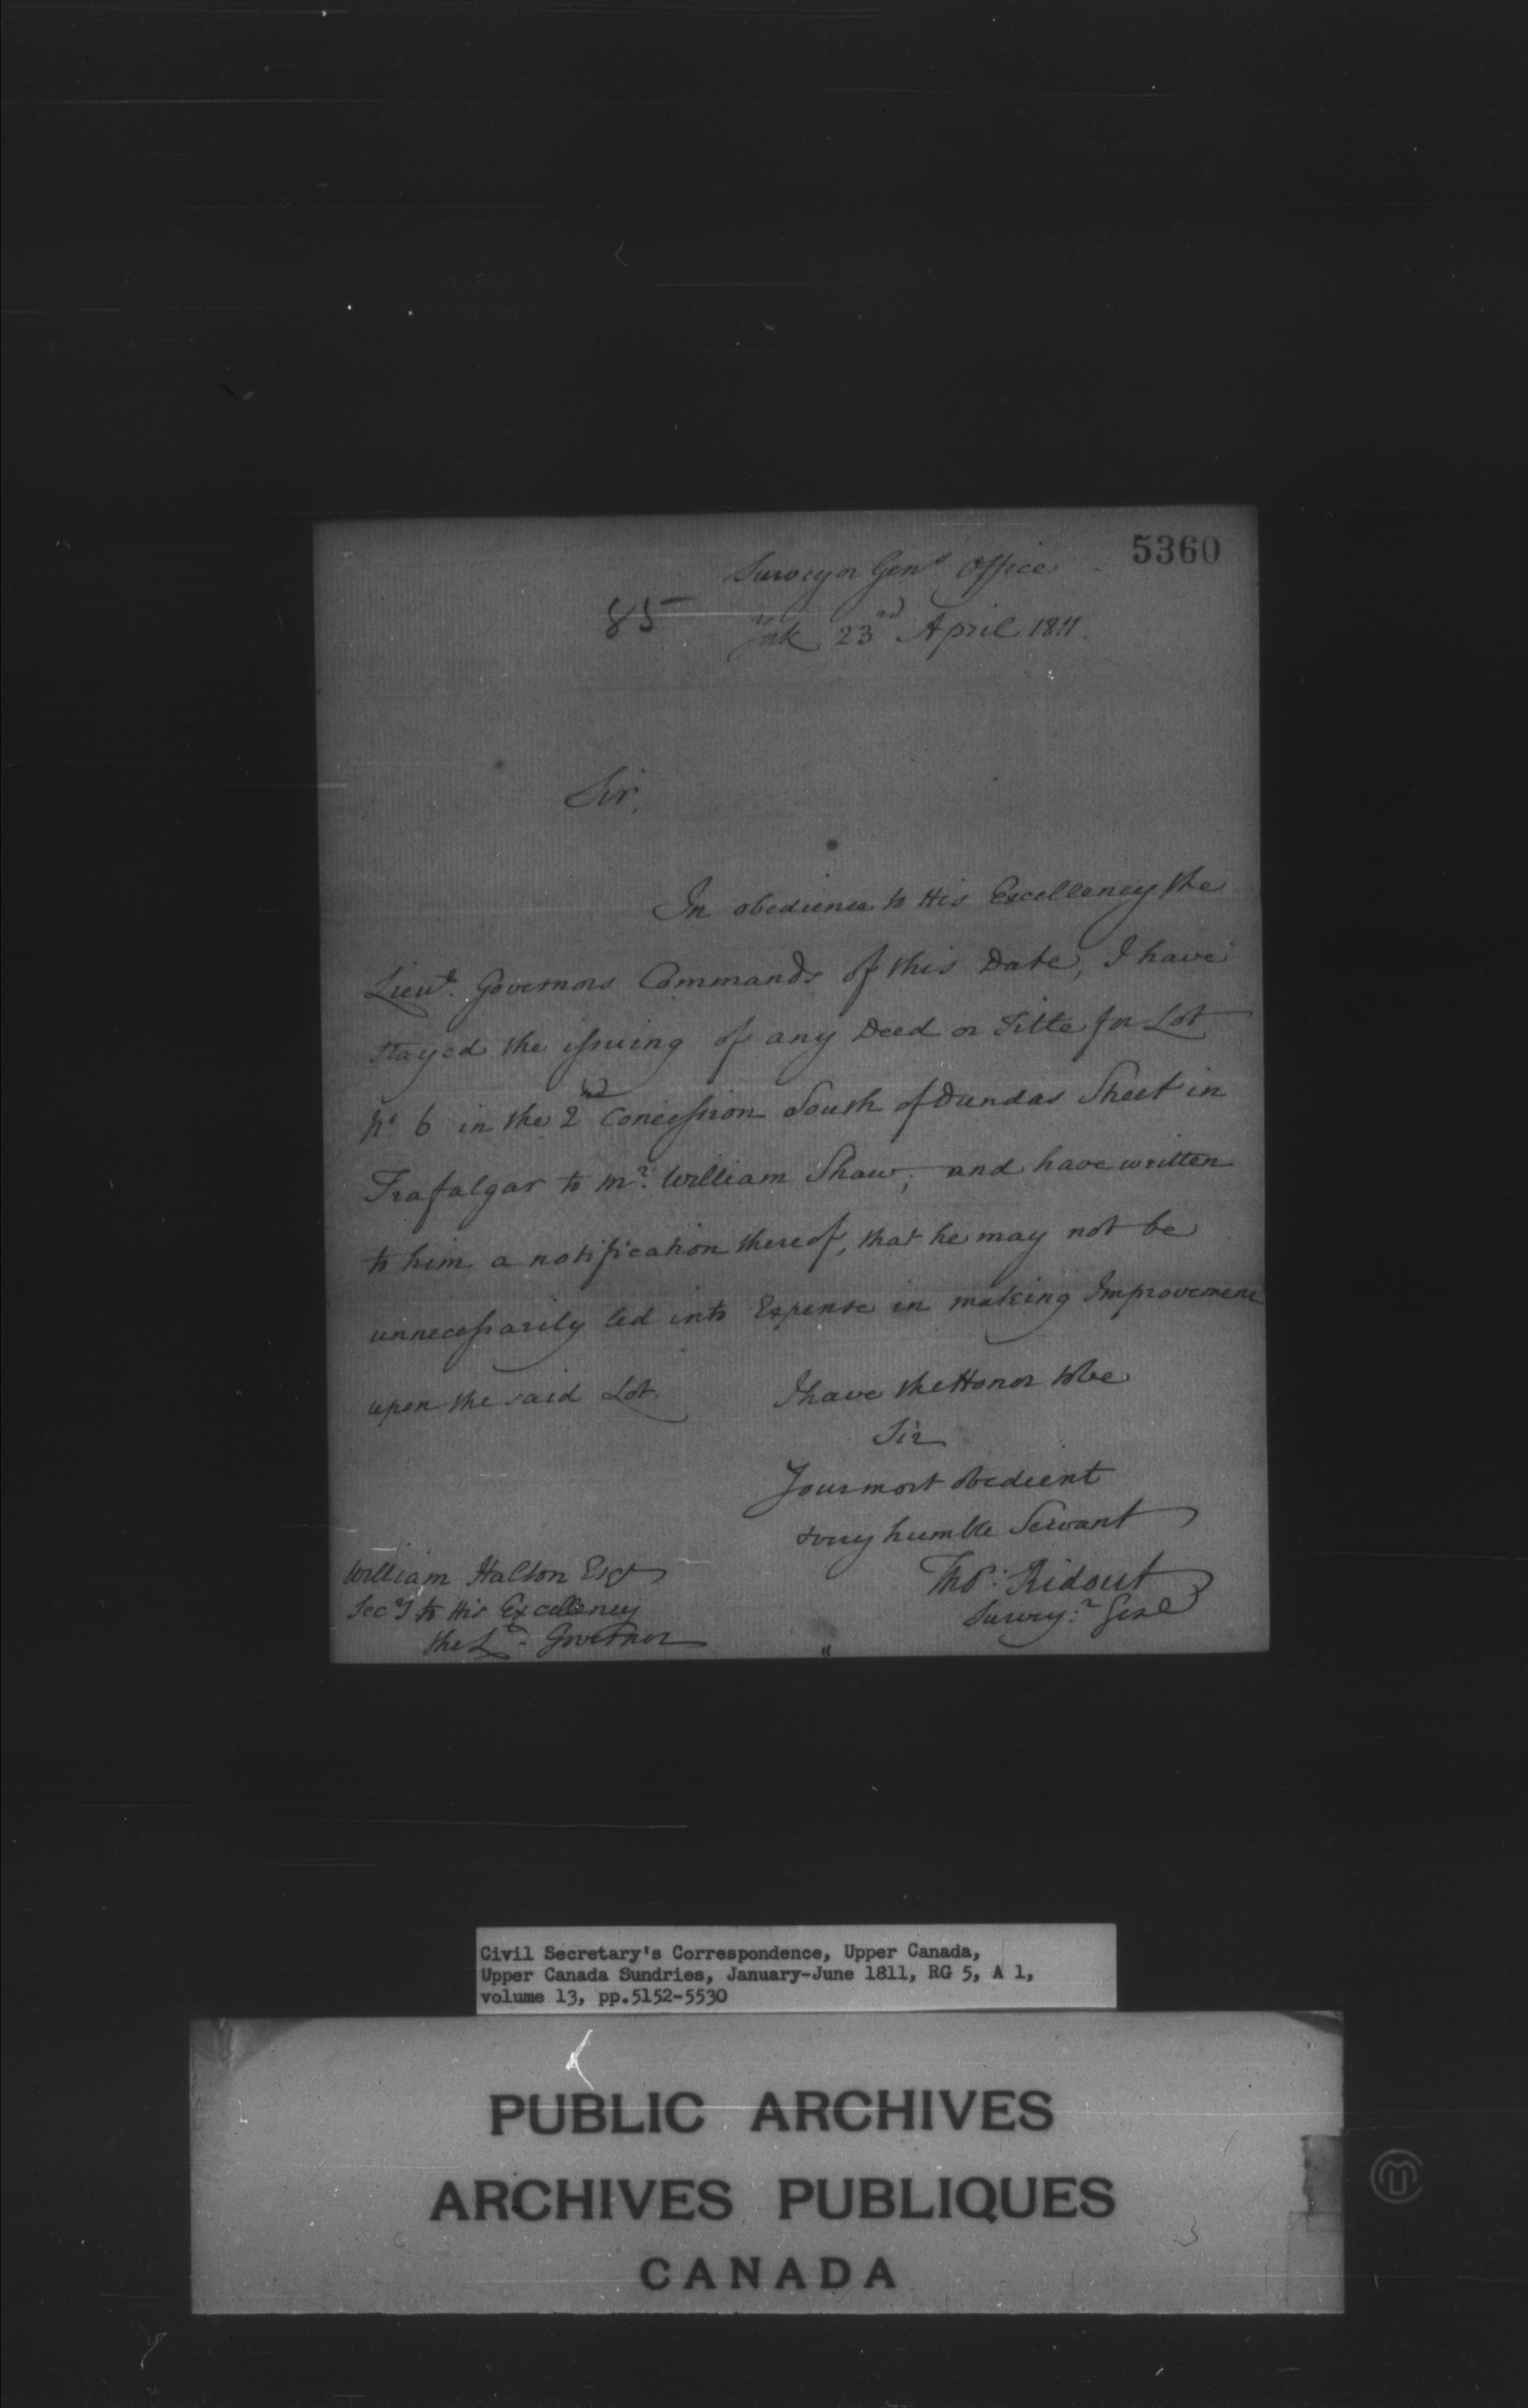 5360
Surveyor Genls. Office
85
York 23rd April 1811.
Sir,
In obedience to His Excellency the
Lieut. Governors Commands of this Date, I have
stayed the issuing of any Deed or Title for Lot
No. 6 in the 2nd Concession South of Dundas Street in
Trafalgar to Mr. William Shaw; and have written
to him a notification thereof, that he may not be
unnecessarily led into Expense in making Improvement
upon the said Lot.
I have the Honor to be
Sir
Your most obedient
& very humble Servant
Thos. Ridout
Surveyr. Genl
William Halton Esqr
Secy to His Excellency
the Lt. Governor
Civil Secretary's Correspondence, Upper Canada,
Upper Canada Sundries, January-June 1811, RG 5, A 1,
volume 13, pp.5152-5530
PUBLIC ARCHIVES
ARCHIVES PUBLIQUES
CANADA